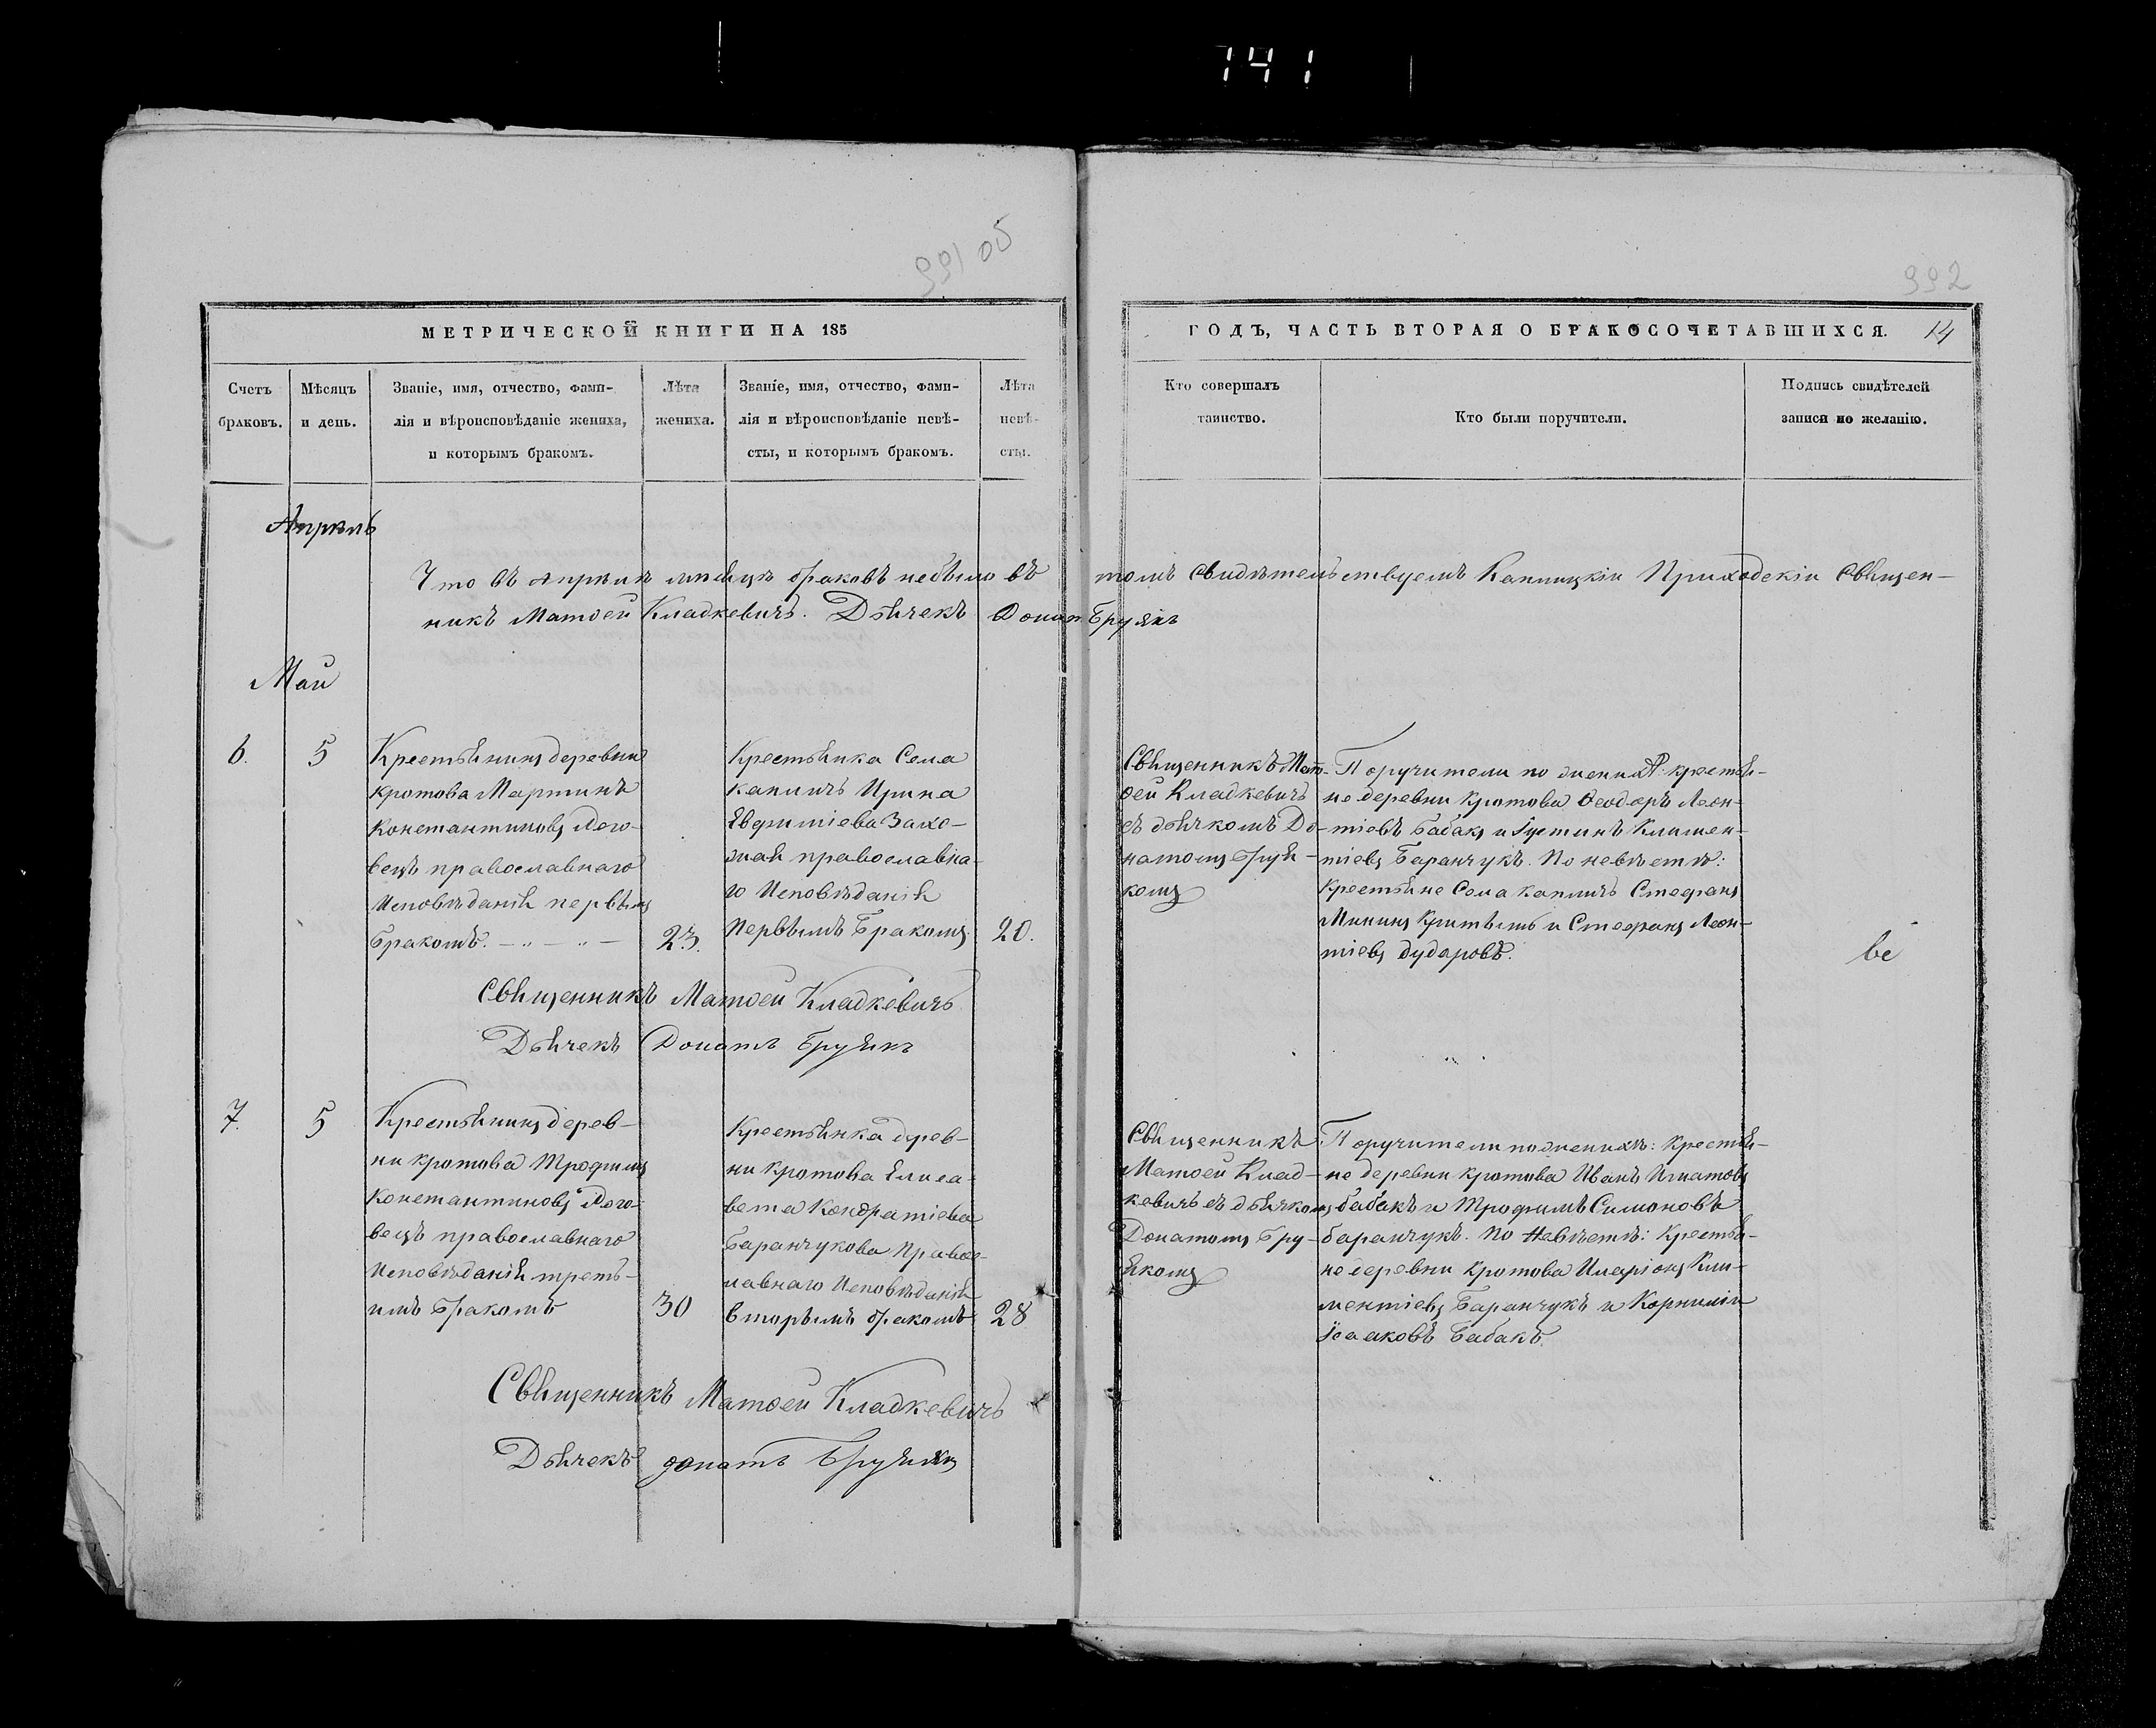 141
991 об
992
МЕТРИЧЕСКОЙ КНИГИ НА 185
ГОДЪ, ЧАСТЬ ВТОРАЯ О БРАКОСОЧЕТАВШИХСЯ.
14
Счетъ
браковъ.
Мѣсяцъ
и день.
Званіе, имя, отчество, фами-
лія и вѣроисповѣданіе жениха,
и которымъ бракомъ.
Лѣта
жениха.
Званіе, имя, отчество, фами-
лія и вѣроисповѣданіе невѣ-
сты, и которымъ бракомъ.
Лѣта
невѣ-
сты.
Кто совершалъ
таинство.
Кто были поручители.
Подпись свидѣтелей
записи по желанію.
Апрѣль
Что въ апрѣлѣ мѣсяцѣ браковъ небыло въ томъ свидѣтельствуемъ Каплицкій Приходскій Священ-
никъ Матѳей Кладкевичъ. Дьячекъ Донат Бруякъ
Май
6.
5
Крестьянинъ деревни
кротова Мартинъ
Константиновъ Лого-
вецъ православнаго
Исповѣданія первымъ
Бракомъ. — „ — „ —
23.
Крестьянка Села
капличъ Ирина
Евфиміева Захо-
жая православна-
го Исповѣданія
первымъ Бракомъ
20.
Священникъ Мат-
ѳей Кладкевичъ
съ дьячкомъ До-
натомъ Бруя-
комъ
Поручители по женихѣ: крестья-
не деревни кротова Ѳеодоръ Леон-
тіевъ Бабакъ и Іустинъ Климен-
тіевъ Баранчукъ. По невѣстѣ:
крестьяне Села капличъ Стефанъ
Мининъ и Стефанъ Леон-
тіевъ дударовъ.
Священникъ Матѳей Кладкевичъ
Дьячекъ Донатъ Бруякъ
7.
5
Крестьянинъ дерев-
ни кротова Трофимъ
Константиновъ Лого-
вецъ православнаго
Исповѣданія треть-
имъ бракомъ
30
Крестьянка дерев-
ни кротова Елиса-
вета Кондратіева
Баранчукова Правос-
лавнаго Исповѣданія
вторымъ бракомъ
28
Священникъ
Матѳей Клад-
кевичъ съ дьячкомъ
Донатомъ Бру-
якомъ
Поручители по женихѣ: крестья-
не деревни кротова Иванъ Игнатовъ
бабакъ и Трофимъ Симоновъ
баранчукъ. по невѣстѣ: крестья-
не деревни кротова Иларіонъ Кли-
ментіевъ Баранчукъ и Корнилій
Ісааковъ Бабакъ.
Священникъ Матѳей Кладкевичъ
Дьячекъ донатъ Бруякъ